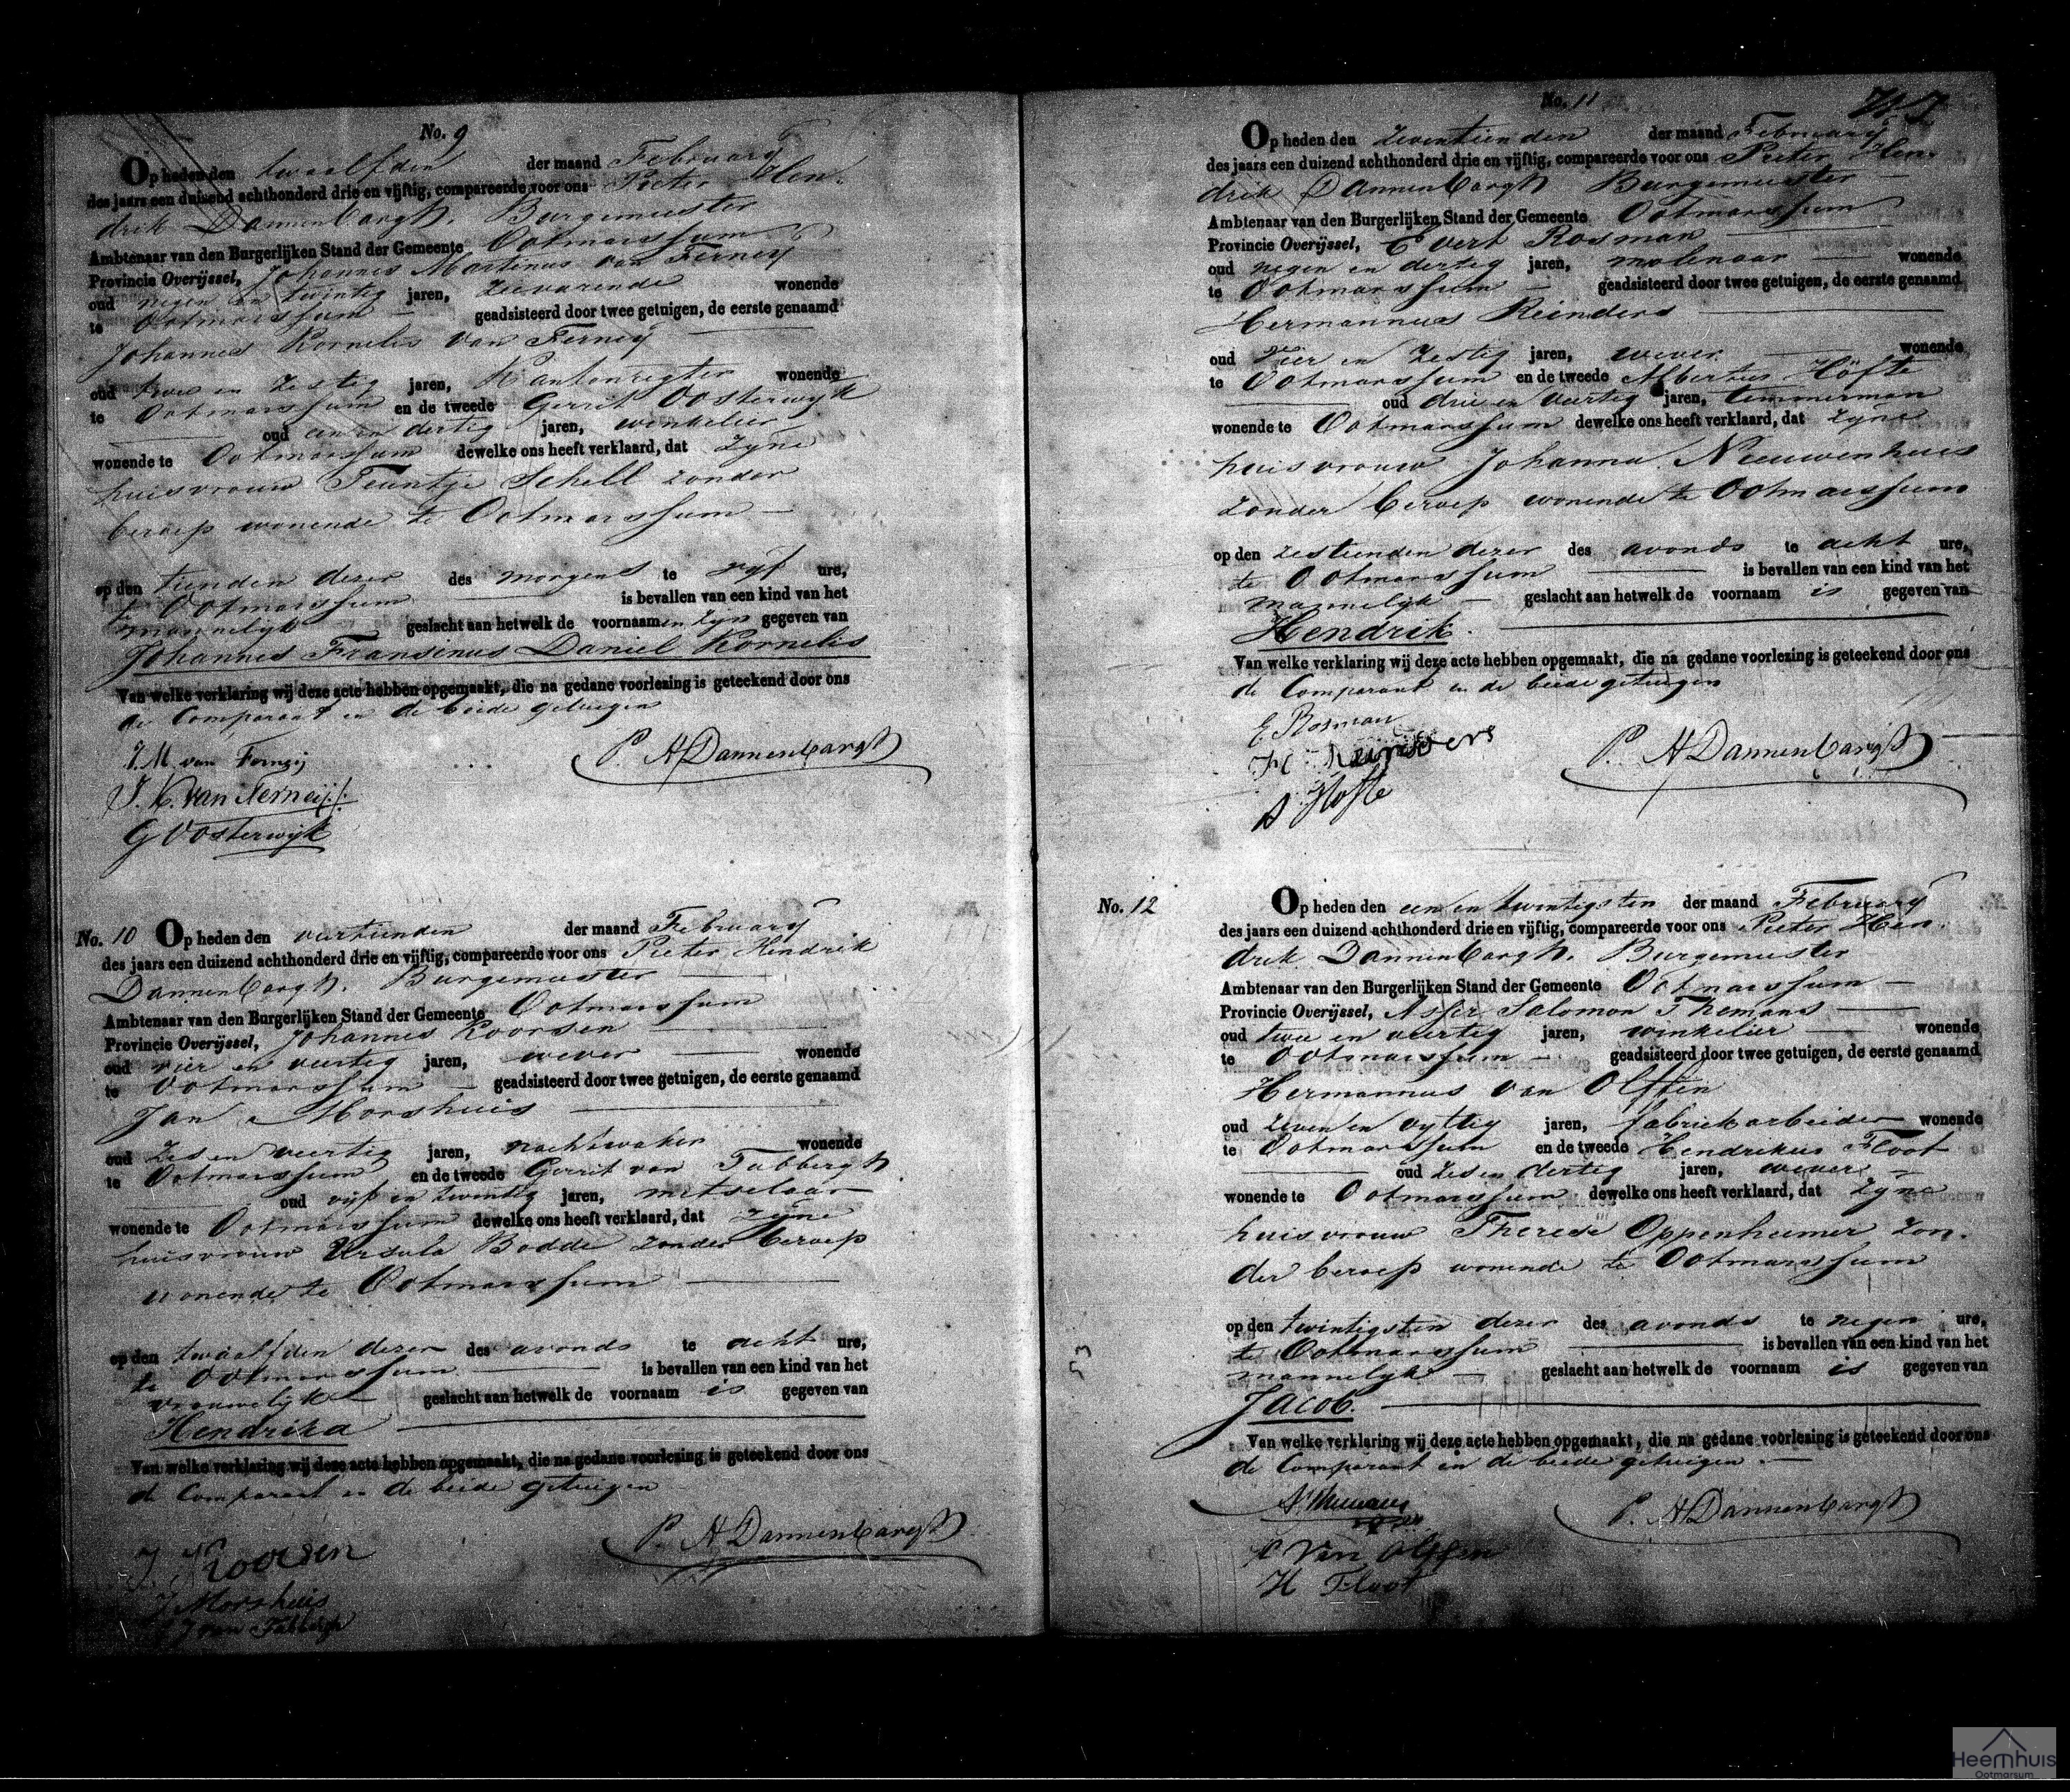 No. 9
Op heden den twaalfden der maand February
des jaars een duizend achthonderd drie en vijftig, compareerde voor ons Pieter Hen-
drik Dannenbargh, Burgemeester
Ambtenaar van den Burgerlijken Stand der Gemeente Ootmarssum
Provincie Overijssel, Johannes Martinus van Ferney
oud negen en twintig jaren, zeevarende wonende
te Ootmarssum geadsisteerd door twee getuigen, de eerste genaamd
Johannes Kornelis van Ferney
oud twee en zestig jaren, Kantonregter wonende
te Ootmarssum en de tweede Gerrit Oosterwyk
oud een en dertig jaren, winkelier
wonende te Ootmarssum dewelke ons heeft verklaard, dat zyne
huisvrouw Teuntje Schell zonder
beroep wonende te Ootmarssum
op den tienden dezer des morgens te vyf ure,
te Ootmarssum is bevallen van een kind van het
mannelyk geslacht aan hetwelk de voornaamen zyn gegeven van
Johannes Fransinus Daniel Kornelis
Van welke verklaring wij deze acte hebben opgemaakt, die na gedane voorlezing is geteekend door ons
de Comparant en de beide getuigen
J. M. van Ferneij
P. H Dannenbargh
J. K. van Ferneij
G Oosterwijk
No. 10 Op heden den veertienden der maand February
des jaars een duizend achthonderd drie en vijftig, compareerde voor ons Pieter Hendrik
Dannenbargh, Burgemeester
Ambtenaar van den Burgerlijken Stand der Gemeente Ootmarssum
Provincie Overijssel, Johannes Koorsen
oud vier en veertig jaren, wever wonende
te Ootmarssum geadsisteerd door twee getuigen, de eerste genaamd
Jan Morshuis
oud zes en veertig jaren, nachtwaker wonende
te Ootmarssum en de tweede Gerrit van Tubbergh
oud vijf en twintig jaren, metselaar
wonende te Ootmarssum dewelke ons heeft verklaard, dat zyne
huisvrouw Ursula Bodde zonder beroep
wonende te Ootmarssum
op den twaalfden dezer des avonds te acht ure,
te Ootmarssum is bevallen van een kind van het
vrouwelyk geslacht aan hetwelk de voornaam is gegeven van
Hendrika
Van welke verklaring wij deze acte hebben opgemaakt, die na gedane voorlezing is geteekend door ons
de Comparant en de beide getuigen
P. H Dannenbargh
J. Koorsen
J Morshuis
van Tubbergh
No. 11
Op heden den zeventienden der maand February
des jaars een duizend achthonderd drie en vijftig, compareerde voor ons Pieter Hen-
drik Dannenbargh Burgemeester
Ambtenaar van den Burgerlijken Stand der Gemeente Ootmarssum
Provincie Overijssel, Evert Rosman
oud negen en dertig jaren, molenaar wonende
te Ootmarssum geadsisteerd door twee getuigen, de eerste genaamd
Hermannus Reinders
oud vier en zestig jaren, wever wonende
te Ootmarssum en de tweede Albertus Höfte
oud drie en veertig jaren, timmerman
wonende te Ootmarssum dewelke ons heeft verklaard, dat zyne
huisvrouw Johanna Nieuwenhuis
zonder beroep wonende te Ootmarssum
op den zestienden dezer des avonds te acht ure,
te Ootmarssum is bevallen van een kind van het
mannelyk geslacht aan hetwelk de voornaam is gegeven van
Hendrik.
Van welke verklaring wij deze acte hebben opgemaakt, die na gedane voorlezing is geteekend door ons
de Comparant en de beide getuigen
E. Rosman
P. H Dannenbargh
A Hofte
No. 12 Op heden den een en twintigsten der maand February
des jaars een duizend achthonderd drie en vijftig, compareerde voor ons Pieter Hen-
drik Dannenbargh, Burgemeester
Ambtenaar van den Burgerlijken Stand der Gemeente Ootmarssum
Provincie Overijssel, Asser Salomon Themans
oud twee en veertig jaren, winkelier wonende
te Ootmarssum geadsisteerd door twee getuigen, de eerste genaamd
Hermannus van Olffen
oud zeven en vyftig jaren, fabriekarbeider wonende
te Ootmarssum en de tweede Hendrikus Floot
oud zes en dertig jaren, wever
wonende te Ootmarssum dewelke ons heeft verklaard, dat zyne
huisvrouw Therese Oppenheimer zon-
der beroep wonende te Ootmarssum
op den twintigsten dezer des avonds te negen ure,
te Ootmarssum is bevallen van een kind van het
mannelyk geslacht aan hetwelk de voornaam is gegeven van
Jacob.
Van welke verklaring wij deze acte hebben opgemaakt, die na gedane voorlezing is geteekend door ons
de Comparant en de beide getuigen
P. H Dannenbargh
van Olffen
H Floot
53
Heemhuis
Ootmarsum